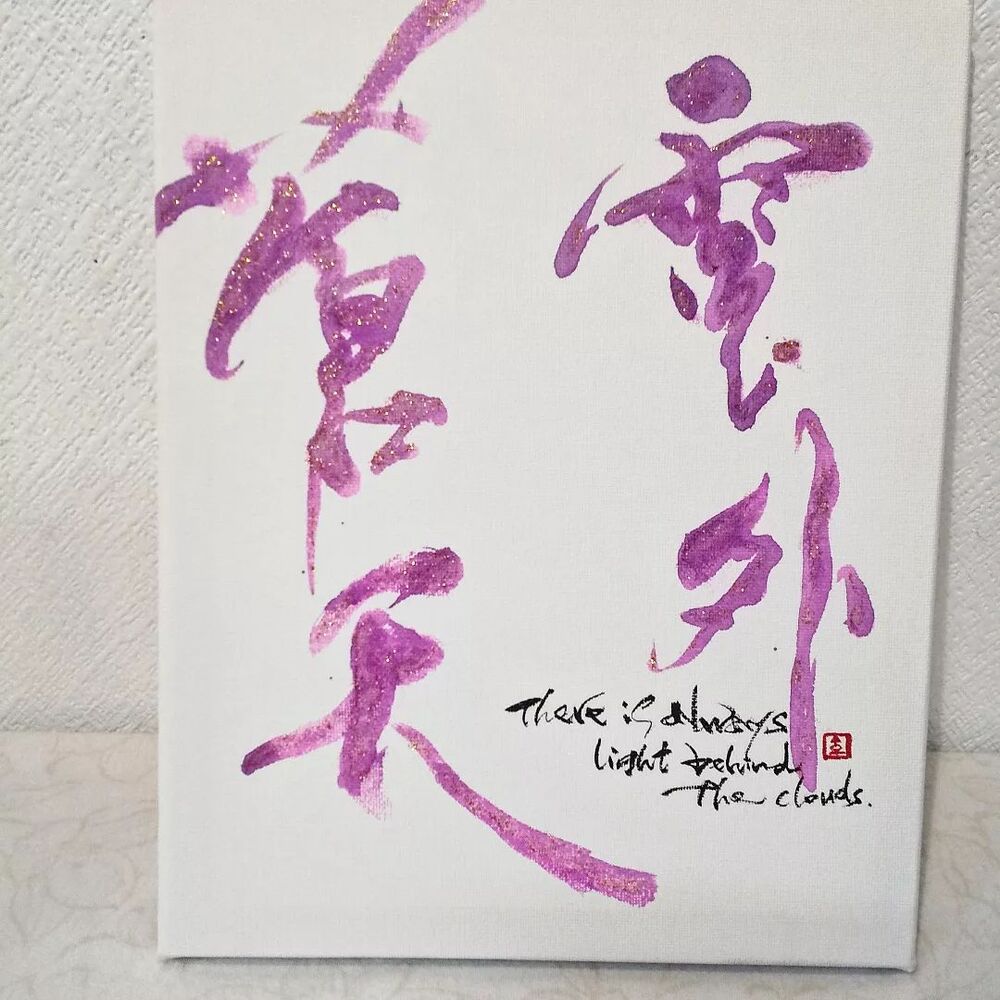 雲外
蒼天
There is always
light behind
The clouds.